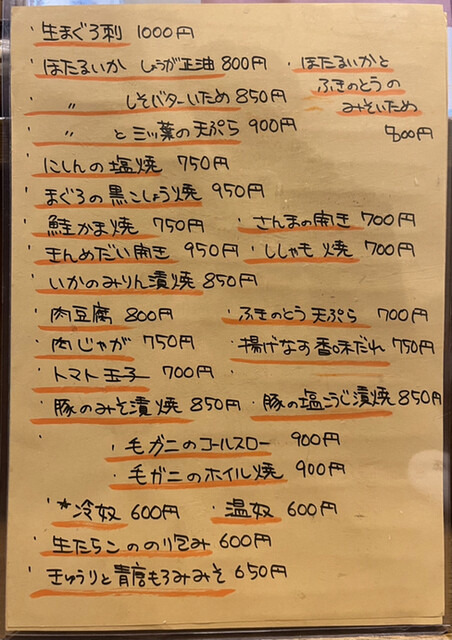 ・生まぐろ刺 1000円
・ほたるいか しょうが正油 800円
・〃 しそバターいため 850円
・〃 と三ッ葉の天ぷら 900円
・ほたるいかと
ふきのとうの
みそいため
800円
・にしんの塩焼 750円
・まぐろの黒こしょう焼 950円
・鮭かま焼 750円 ・さんまの開き 700円
・きんめだい開き 950円 ・ししゃも焼 700円
・いかのみりん漬焼 850円
・肉豆腐 800円 ・ふきのとう天ぷら 700円
・肉じゃが 750円 ・揚げなす香味だれ 750円
・トマト玉子 700円
・豚のみそ漬焼 850円 ・豚の塩こうじ漬焼 850円
・毛ガニのコールスロー 900円
・毛ガニのホイル焼 900円
・*冷奴 600円 ・温奴 600円
・生たらこののり包み 600円
・きゅうりと青唐もろみみそ 650円